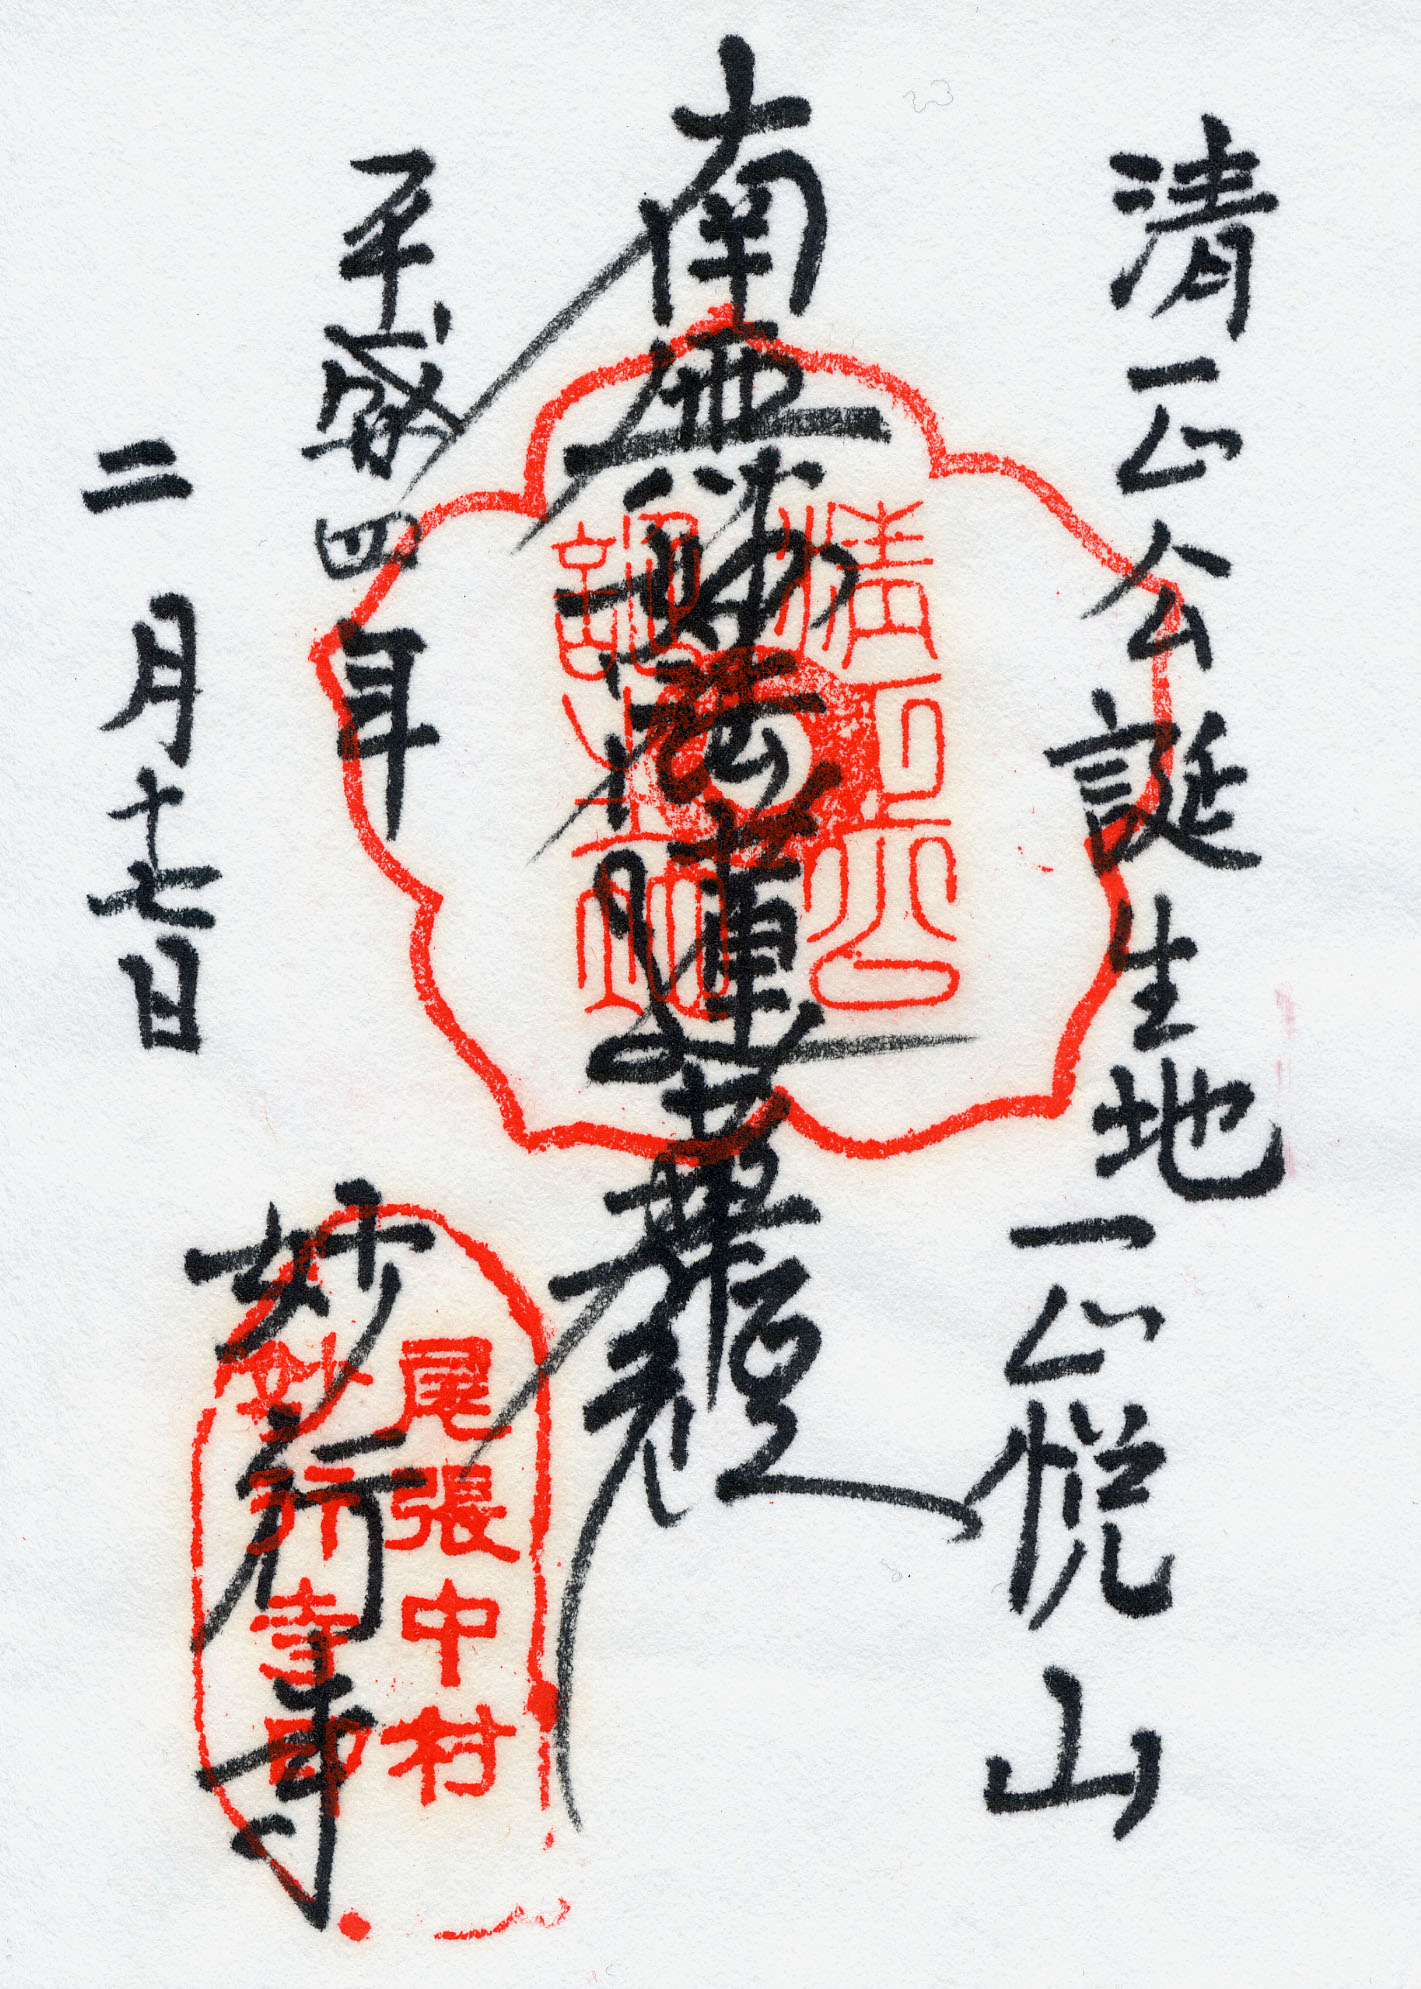 清正公誕生地 正悦山
南無妙法蓮華經
平成廿四年
二月十七日
妙行寺
清正公
誕生地
尾張中村
妙行寺印